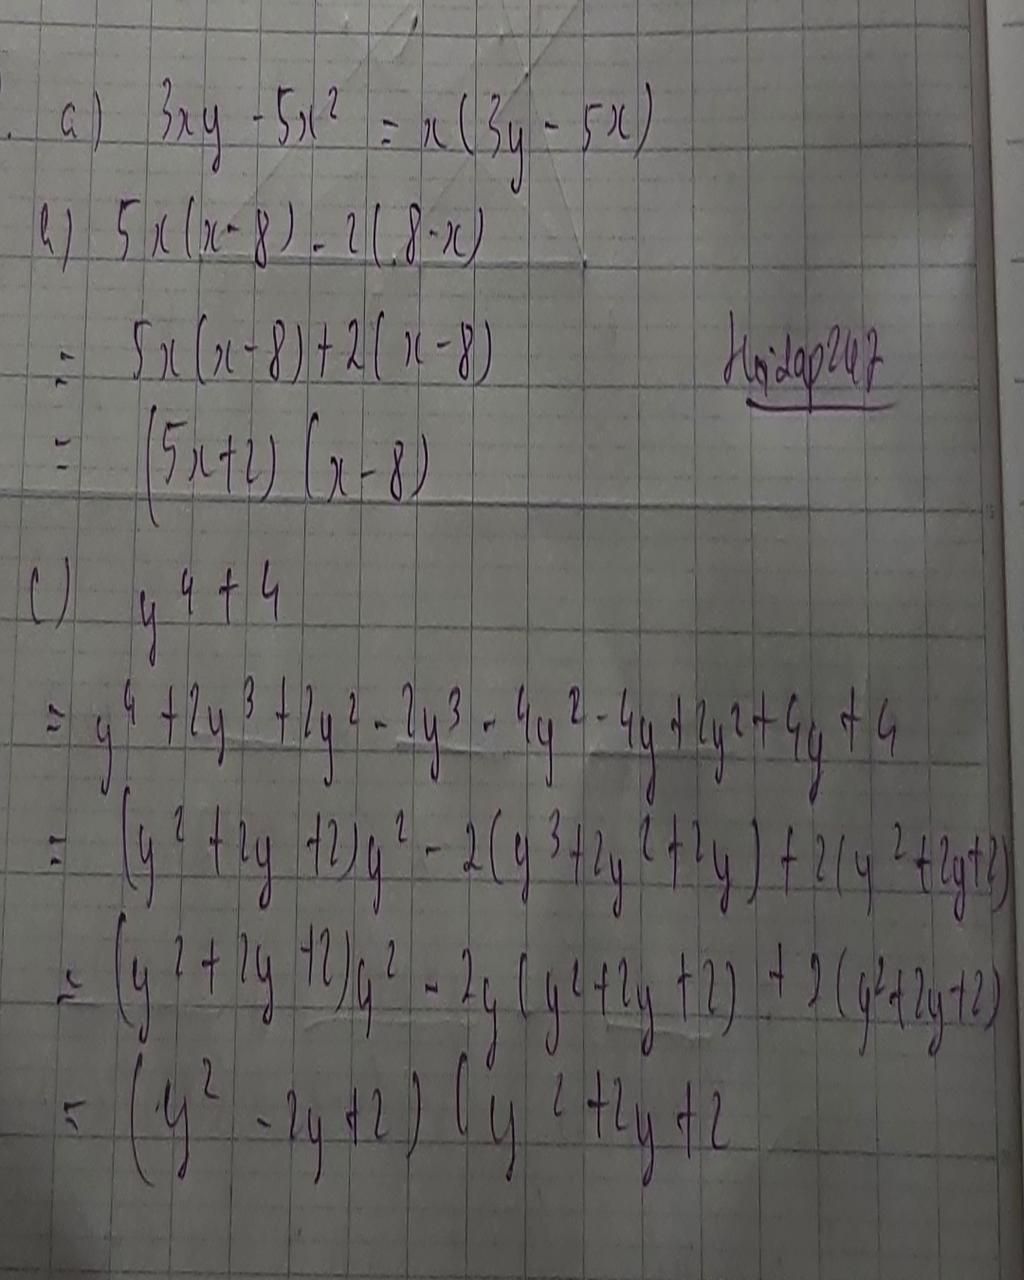 a) 3xy - 5x² = x(3y - 5x)
b) 5x(x-8) - 2(8-x)
= 5x(x-8)+2(x-8)
Hoidap247
= (5x+2)(x-8)
c) y⁴ + 4
= y⁴ + 2y³ + 2y² - 2y³ - 4y² - 4y + 2y² + 4y + 4
= (y² + 2y + 2)y² - 2(y³+2y²+2y) + 2(y²+2y+2)
= (y² + 2y +2)y² - 2y(y²+2y+2) + 2(y²+2y+2)
= (y² - 2y+2)(y² +2y+2